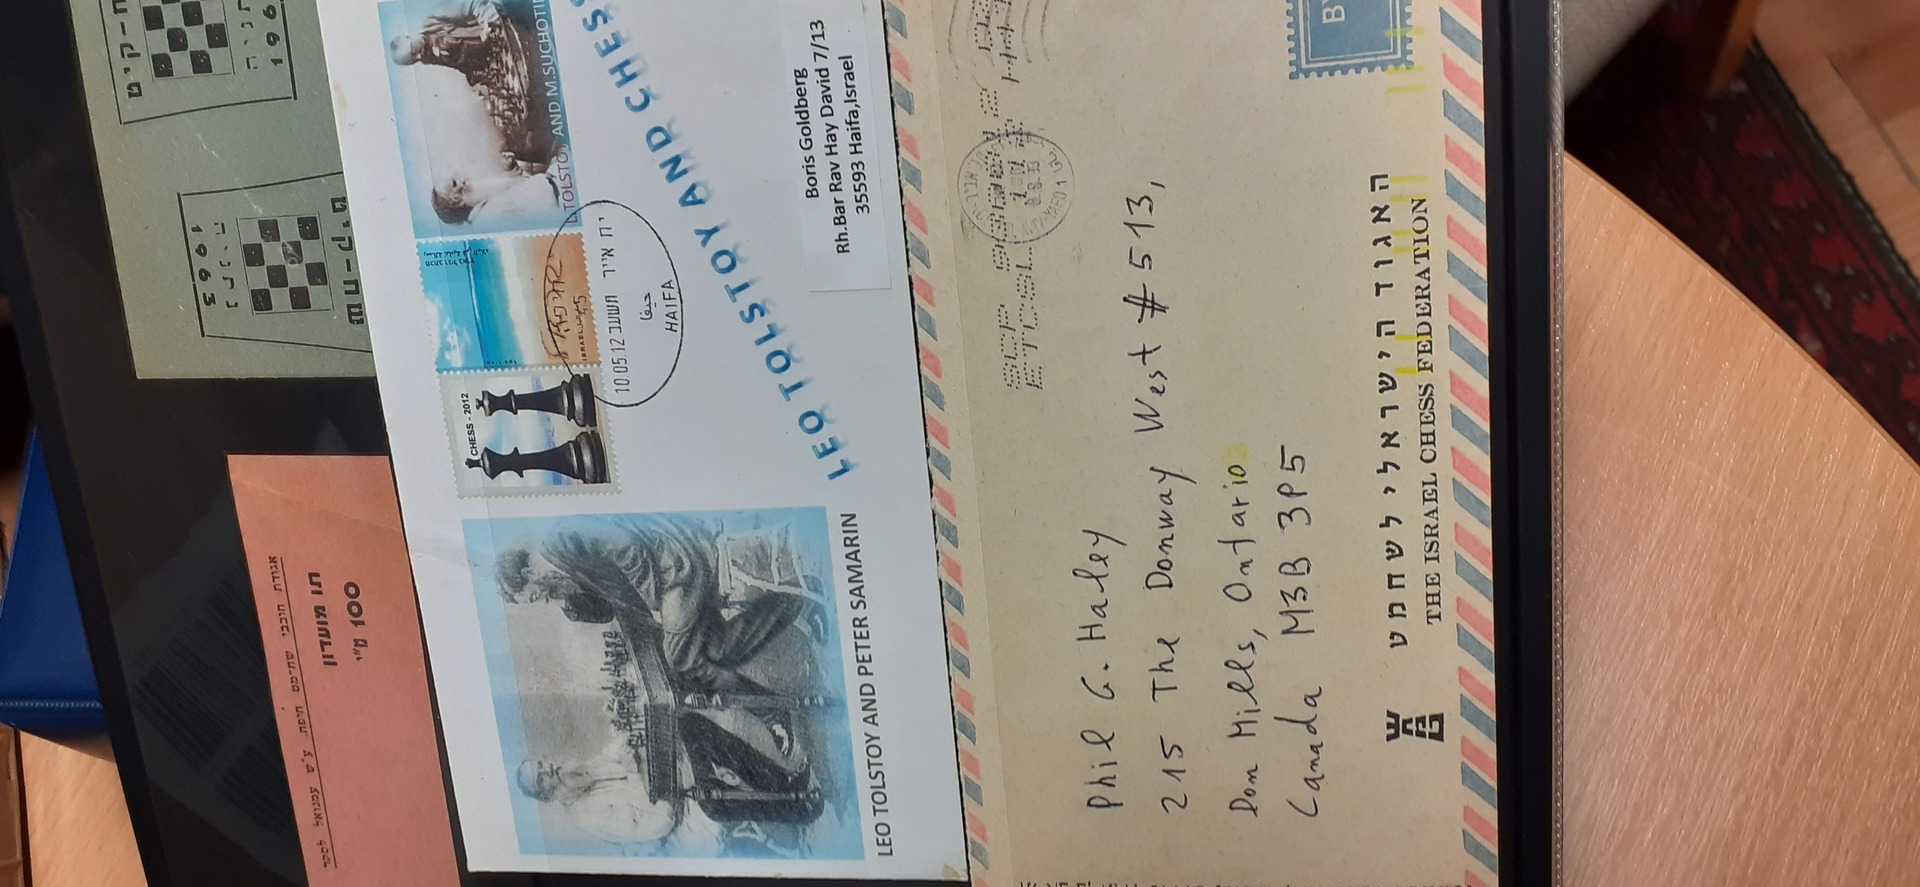 שח-קיט
1963
שח-קיט
אגודת חובבי שח-מט חיפה, ע"ש עמנואל לסקר
תו מועדון
100 מ"י
CHESS - 2012
ISRAEL
L.TOLSTOY AND M.SUCHOTIN
10.05.12 יח אייר תשעב
حيفا
HAIFA
LEO TOLSTOY AND CHESS
Boris Goldberg
Rh.Bar Rav Hay David 7/13
35593 Haifa,Israel
LEO TOLSTOY AND PETER SAMARIN
BY
Phil G. Haley
215 The Donway West #513,
Don Mills, Ontario
Canada M3B 3P5
האגוד הישראלי לשחמט
THE ISRAEL CHESS FEDERATION